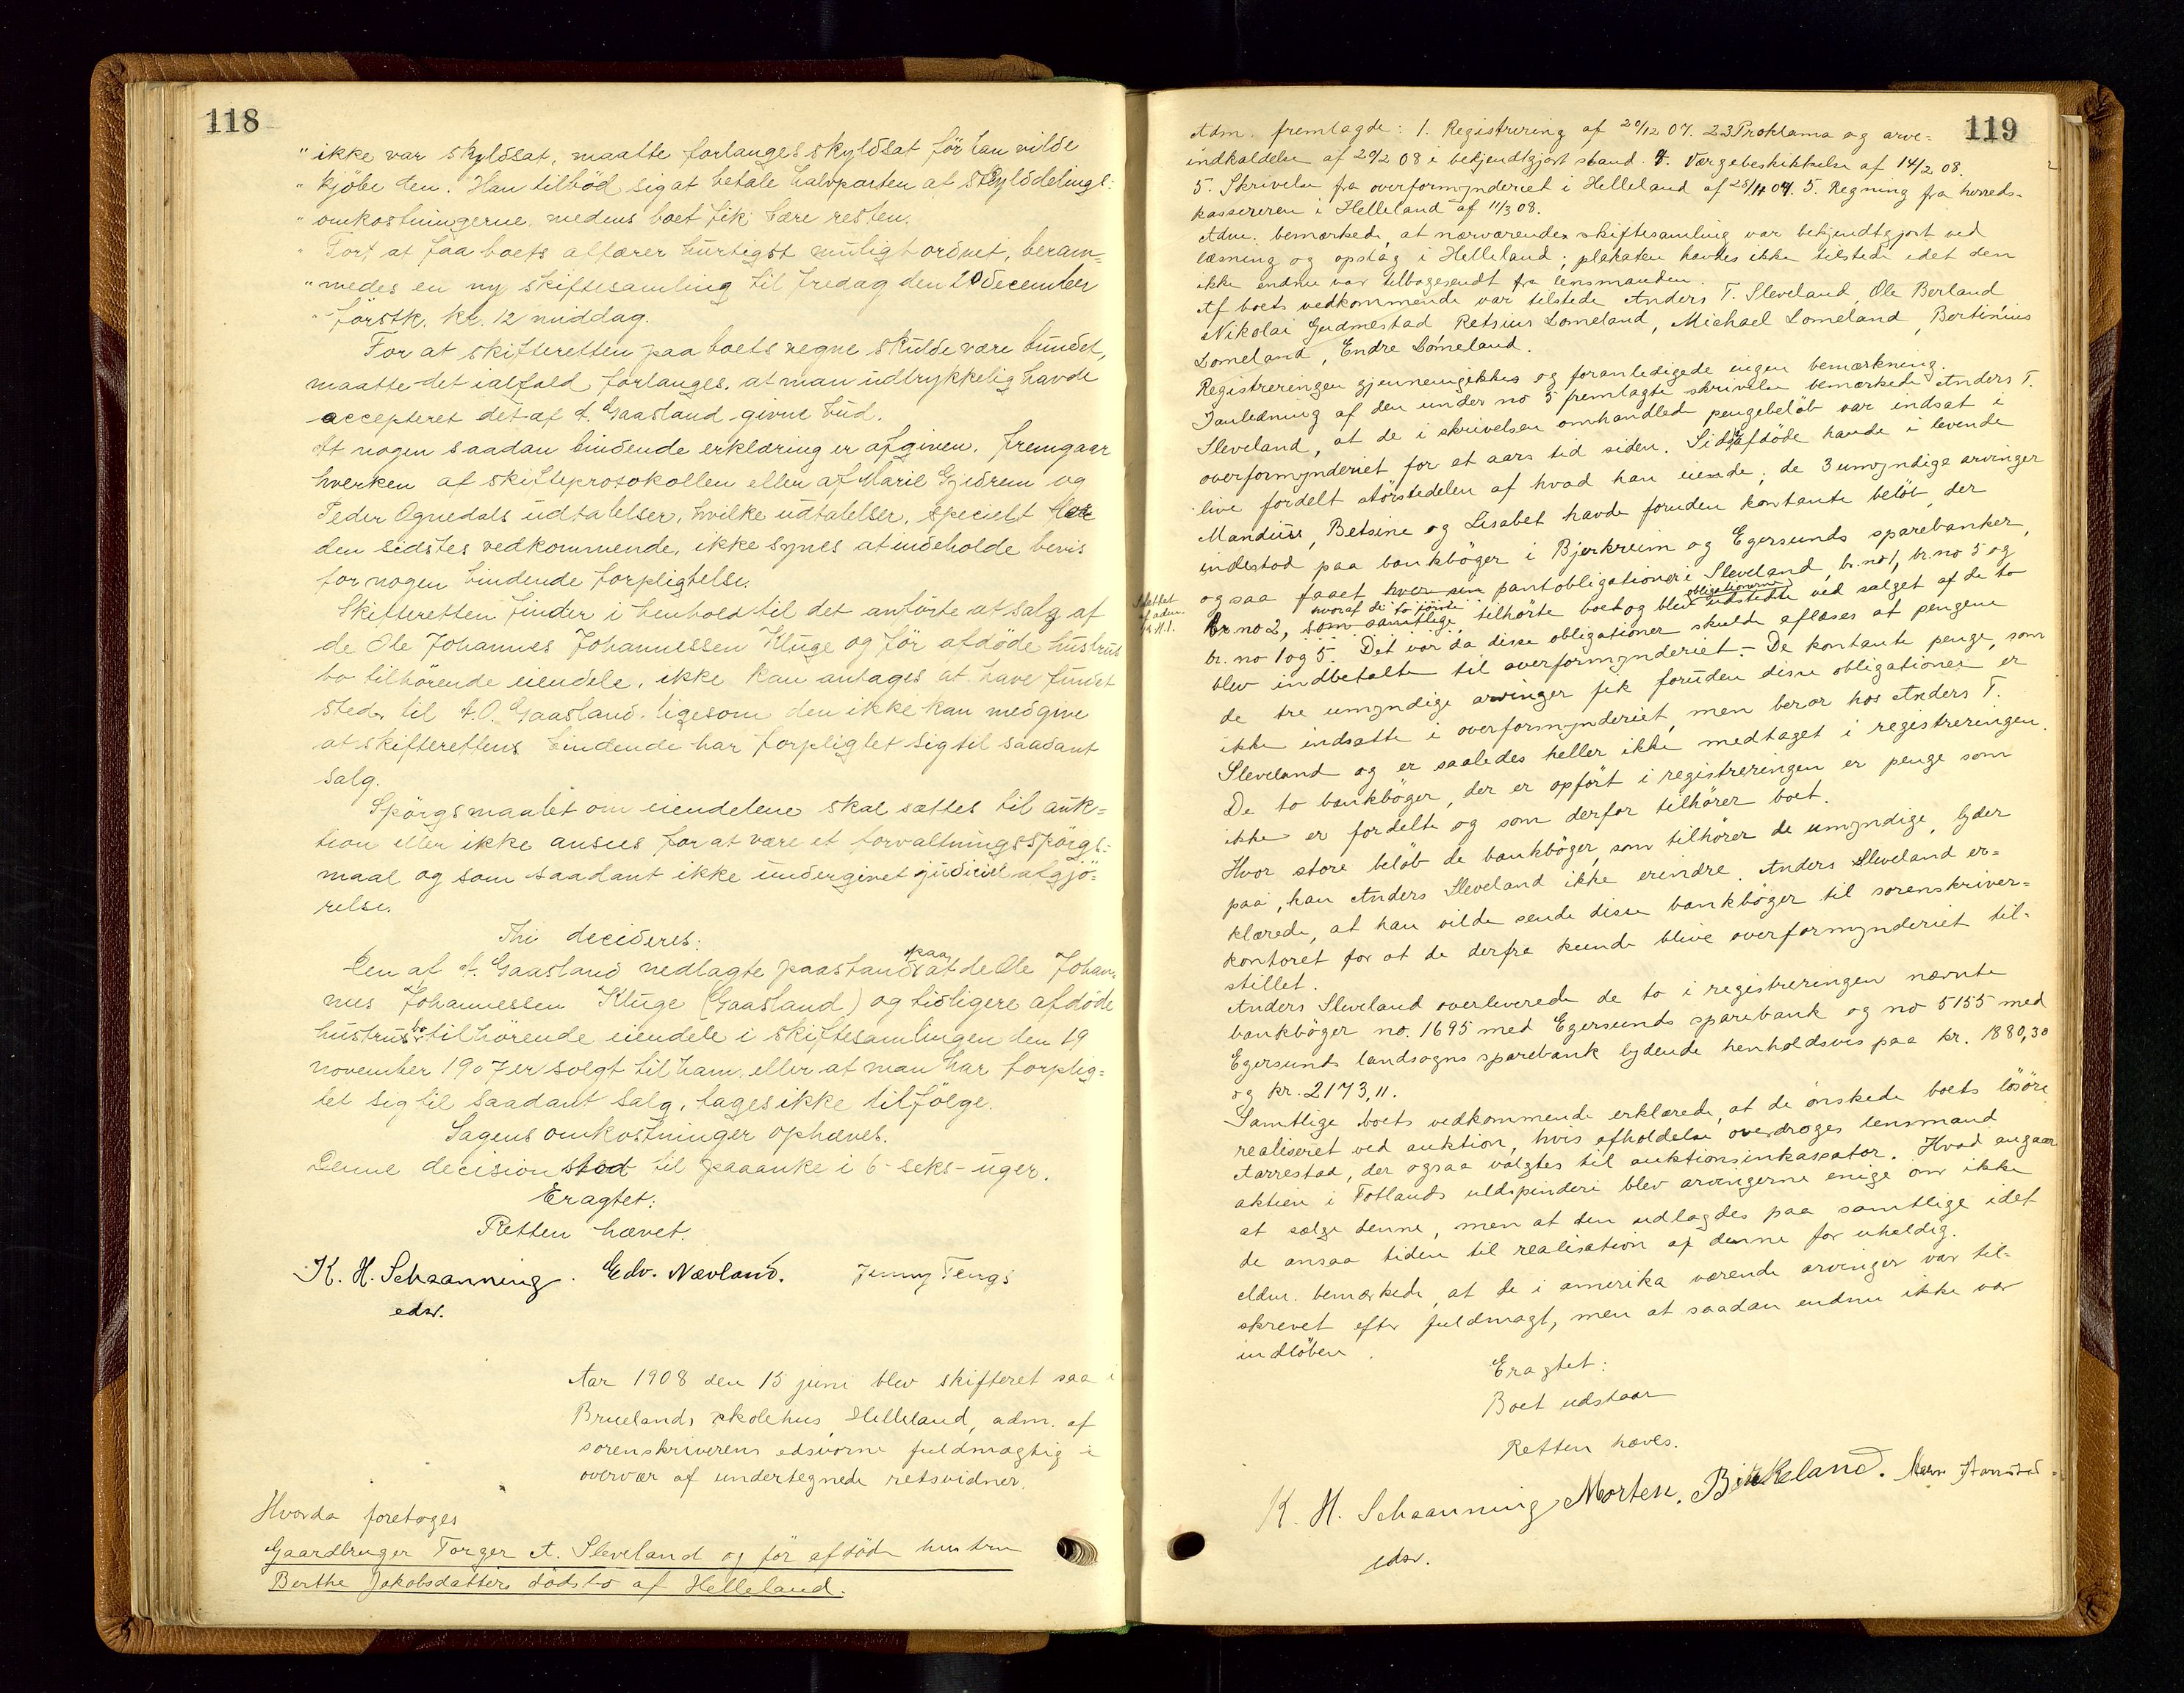 118
" ikke var skyldsat, maatte forlanges skyldsat før han vilde
" kjøbe den. Han tilbød sig at betale halvparten af skylddelings-
" omkostningerne, medens boet fik bære resten.
" For at faa boets affærer hurtigst muligt ordnet, beram=
" medes en ny skiftesamling til fredag den 20 december
" førstk. kl. 12 middag.
For at skifteretten paa boets vegne skulde være bundet,
maatte det ialfald forlanges, at man udtrykkelig havde
accepteret det af A. Gaasland givne bud.
At nogen saadan bindende erklæring er afgiven, fremgaar
hverken af skifteprotokollen eller af Marie Gjedrem og
Peder Ognedals udtalelser, hvilke udtalelser, specielt for
den sidstes vedkommende, ikke synes at indeholde bevis
for nogen bindende forpligtelse.
Skifteretten finder i henhold til det anførte at salg af
de Ole Johannes Johannessen Kluge og før afdøde hustrus
bo tilhørende eiendele, ikke kan antages at have fundet
sted til A.O. Gaasland, ligesom den ikke kan medgive
at skifterettens bindende har forpligtet sig til saadant
salg.
Spørgsmaalet om eiendelene skal sættes til auk=
tion eller ikke ansees for at være et forvaltningsspørgs=
maal og som saadant ikke undergivet judiciel afgjø=
relse.
Thi decideres:
Den af A. Gaasland nedlagte paastand paa at de Ole Johan=
nes Johannessen Kluge (Gaasland) og tidligere afdøde
hustrus bo tilhørende eiendele i skiftesamlingen den 19
november 1907 er solgt til ham, eller at man har forplig=
tet sig til saadant salg, tages ikke tilfølge.
Sagens omkostninger ophæves.
Denne decision stod til paaanke i 6 - seks - uger.
Eragtet:
Retten hævet.
K. H. Schaanning. Edv. Nævland. Jenny Tengs
edsv.
Aar 1908 den 15 juni blev skifteret sat i
Bruelands skolehus, Helleland, adm. af
sorenskriverens edsvorne fuldmægtig i
overvær af undertegnede retsvidner.
Hvorda foretoges
Gaardbruger Torger A. Sleveland og før afdøde hustru
Berthe Jakobsdatters dødsbo af Helleland.
119
Adm. fremlagde: 1. Registrering af 20/12 07. 2 3 Proklama og arve=
indkaldelse af 29/2 08 i bekjendtgjort stand. 4. Værgebeskikkelse af 14/2 08.
5. Skrivelse fra overformynderiet i Helleland af 5. Regning fra herreds-
kassereren i Helleland af 11/3 08.
Adm. bemærkede, at nærværende skiftesamling var bekjendtgjort ved
læsning og opslag i Helleland; plakaten havdes ikke tilstede idet den
ikke endnu var tilbagesendt fra lensmanden.
Af boets vedkommende var tilstede Anders T. Sleveland, Ole Berland,
Nikolai Gudmestad Retsius Lomeland, Michael Lomeland, Bertinius
Lomeland, Endre Lomeland.
Registreringen gjennemgikkes og foranledigede ingen bemærkning.
I anledning af den under no 5 fremlagte skrivelse bemærkede Anders T.
Sleveland, at de i skrivelsen omhandlede pengebeløb var indsat i
overformynderiet for et aars tid siden. Sidstafdøde havde i levende
live fordelt størstedelen af hvad han eiede; de 3 umyndige arvinger
Mandius, Betsine og Lisabet havde foruden kontante beløb, der
indestod paa bankbøger i Bjerkreim og Egersunds sparebanker,
ogsaa faaet hver sin pantobligationer i Sleveland, br. no 1, br. no 5 og
Slettet
af adm.
K.H.S.
br no 2, som samtlige hvoraf de to første tilhørte boet og blev obligationerne udstedte ved salget af de to
br. no 1 og 5. Det var da disse obligationer skulde aflæses at pengene
blev indbetalte til overformynderiet. - De kontante penge, som
de tre umyndige arvinger fik foruden disse obligationer er
ikke indsatte i overformynderiet, men beror hos Anders T.
Sleveland og er saaledes heller ikke medtaget i registreringen.
De to bankbøger, der er opført i registreringen er penge som
ikke er fordelte og som derfor tilhører boet.
Hvor store beløb de bankbøger, som tilhører de umyndige, lyder
paa, kan Anders Sleveland ikke erindre. Anders Sleveland er=
klærede, at han vilde sende disse bankbøger til sorenskriver=
kontoret for at de derfra kunde blive overformynderiet til=
stillet.
Anders Sleveland overleverede de to i registreringen nævnte
bankbøger no. 1695 med Egersunds sparebank og no 5155 med
Egersunds landsogns sparebank lydende henholdsvis paa kr. 1880,30
og kr. 2173,11.
Samtlige boets vedkommende erklærede, at de ønskede boets løsøre
realiseret ved auktion, hvis afholdelse overdroges lensmand
Aarrestad, der ogsaa valgtes til auktionsinkassator. Hvad angaar
aktien i Fotlands uldspinderi blev arvingerne enige om ikke
at sælge denne, men at den udlagdes paa samtlige idet
de ansaa tiden til realisation af denne for uheldig.
Adm. bemærkede, at de i amerika værende arvinger var til=
skrevet efter fuldmagt, men at saadan endnu ikke var
indløben.
Eragtet:
Boet udstaar
Retten hæves.
K. H. Schaanning Morten. Birkeland.
edsv.